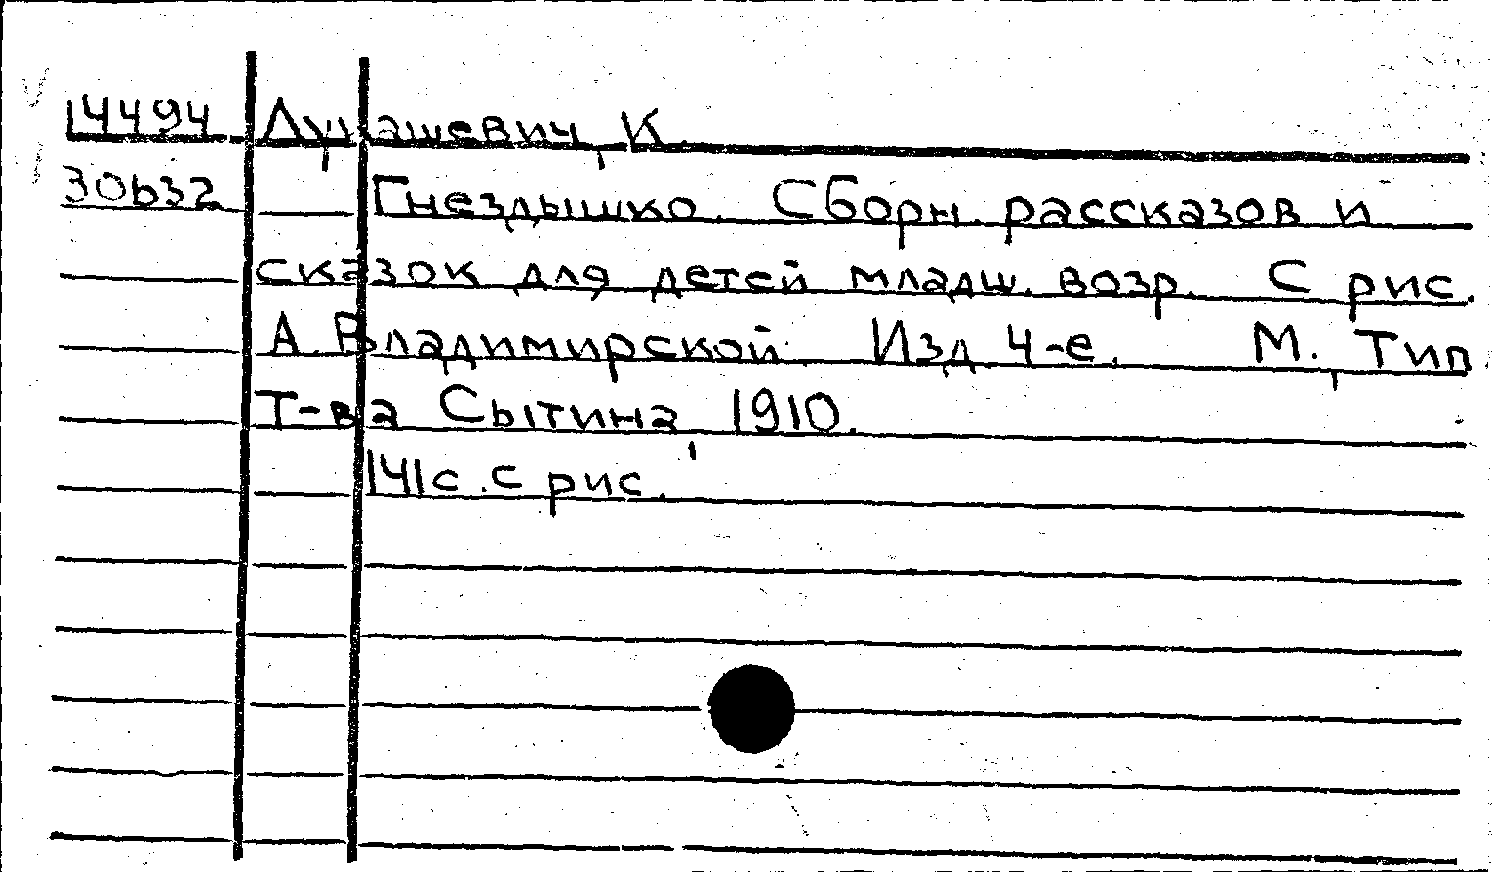 14494 Лукашевич, К.
30b32 Гнездышко. Сборн. рассказов и
сказок для детей младш. возр. С рис.
А. Владимирской. Изд. 4-е. М., Тип.
Т-ва Сытина, 1910.
141с. с рис.